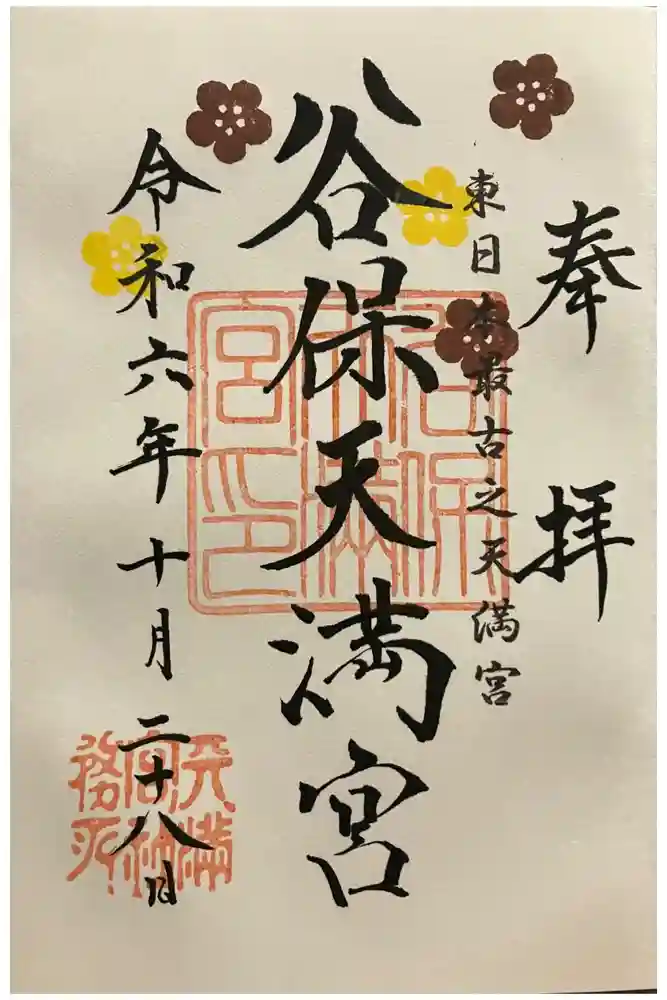 奉拝
東日本最古之天満宮
谷保天満宮
令和六年十月二十八日
谷保天満宮印
天満宮社務所